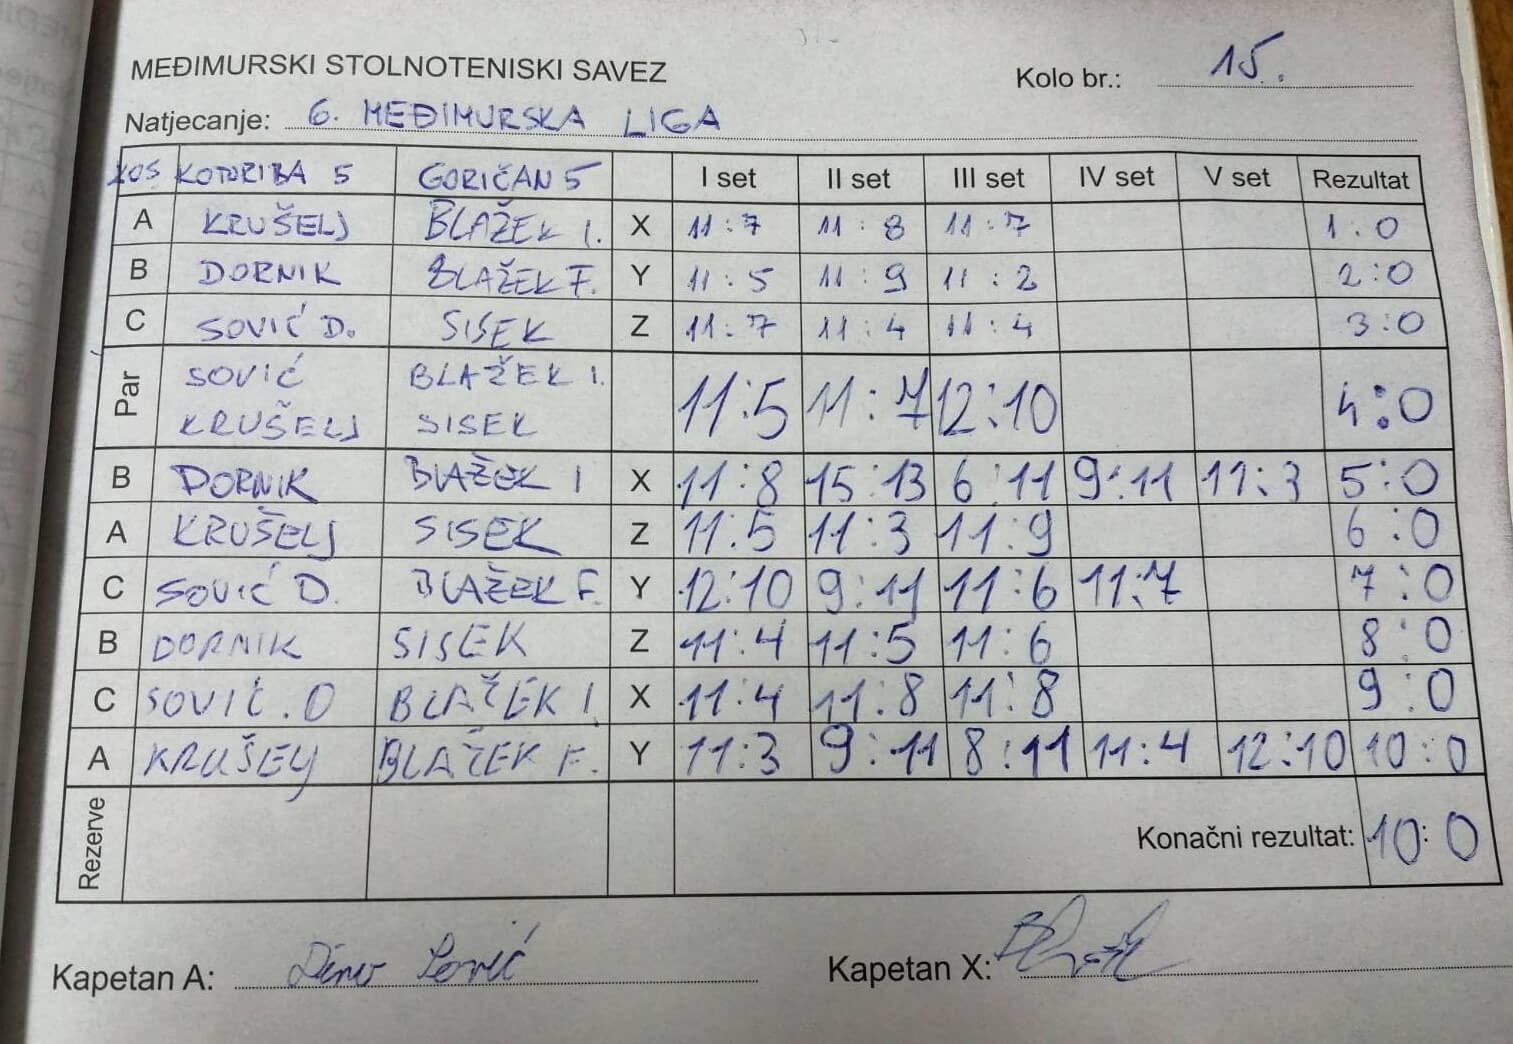 MEĐIMURSKI STOLNOTENISKI SAVEZ
Kolo br.: 15.
Natjecanje: 6. MEĐIMURSKA LIGA
KOS KOTORIBA 5 GORIČAN 5 I set II set III set IV set V set Rezultat
A KRUŠELJ BLAŽEK I. X 11:7 11:8 11:7 1:0
B DORNIK BLAŽEK F. Y 11:5 11:9 11:2 2:0
C SOVIĆ D. SISEK Z 11:7 11:4 11:4 3:0
Par SOVIĆ BLAŽEK I. 11:5 11:7 12:10 4:0
KRUŠELJ SISEK
B DORNIK BLAŽEK I X 11:8 15:13 6:11 9:11 11:3 5:0
A KRUŠELJ SISEK Z 11:5 11:3 11:9 6:0
C SOVIĆ D. BLAŽEK F. Y 12:10 9:11 11:6 11:7 7:0
B DORNIK SISEK Z 11:4 11:5 11:6 8:0
C SOVIĆ.D BLAŽEK I. X 11:4 11:8 11:8 9:0
A KRUŠELJ BLAŽEK F. Y 11:3 9:11 8:11 11:4 12:10 10:0
Rezerve Konačni rezultat: 10:0
Kapetan A: Dino Sović
Kapetan X: